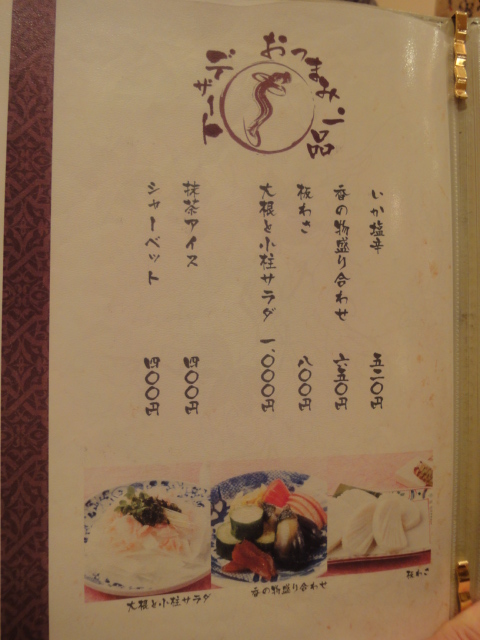 おつまみ一品
いか塩辛 五二〇円
香の物盛り合わせ 六五〇円
板わさ 八〇〇円
大根と小柱サラダ 一、〇〇〇円
デザート
抹茶アイス 四〇〇円
シャーベット 四〇〇円
大根と小柱サラダ
香の物盛り合わせ
板わさ